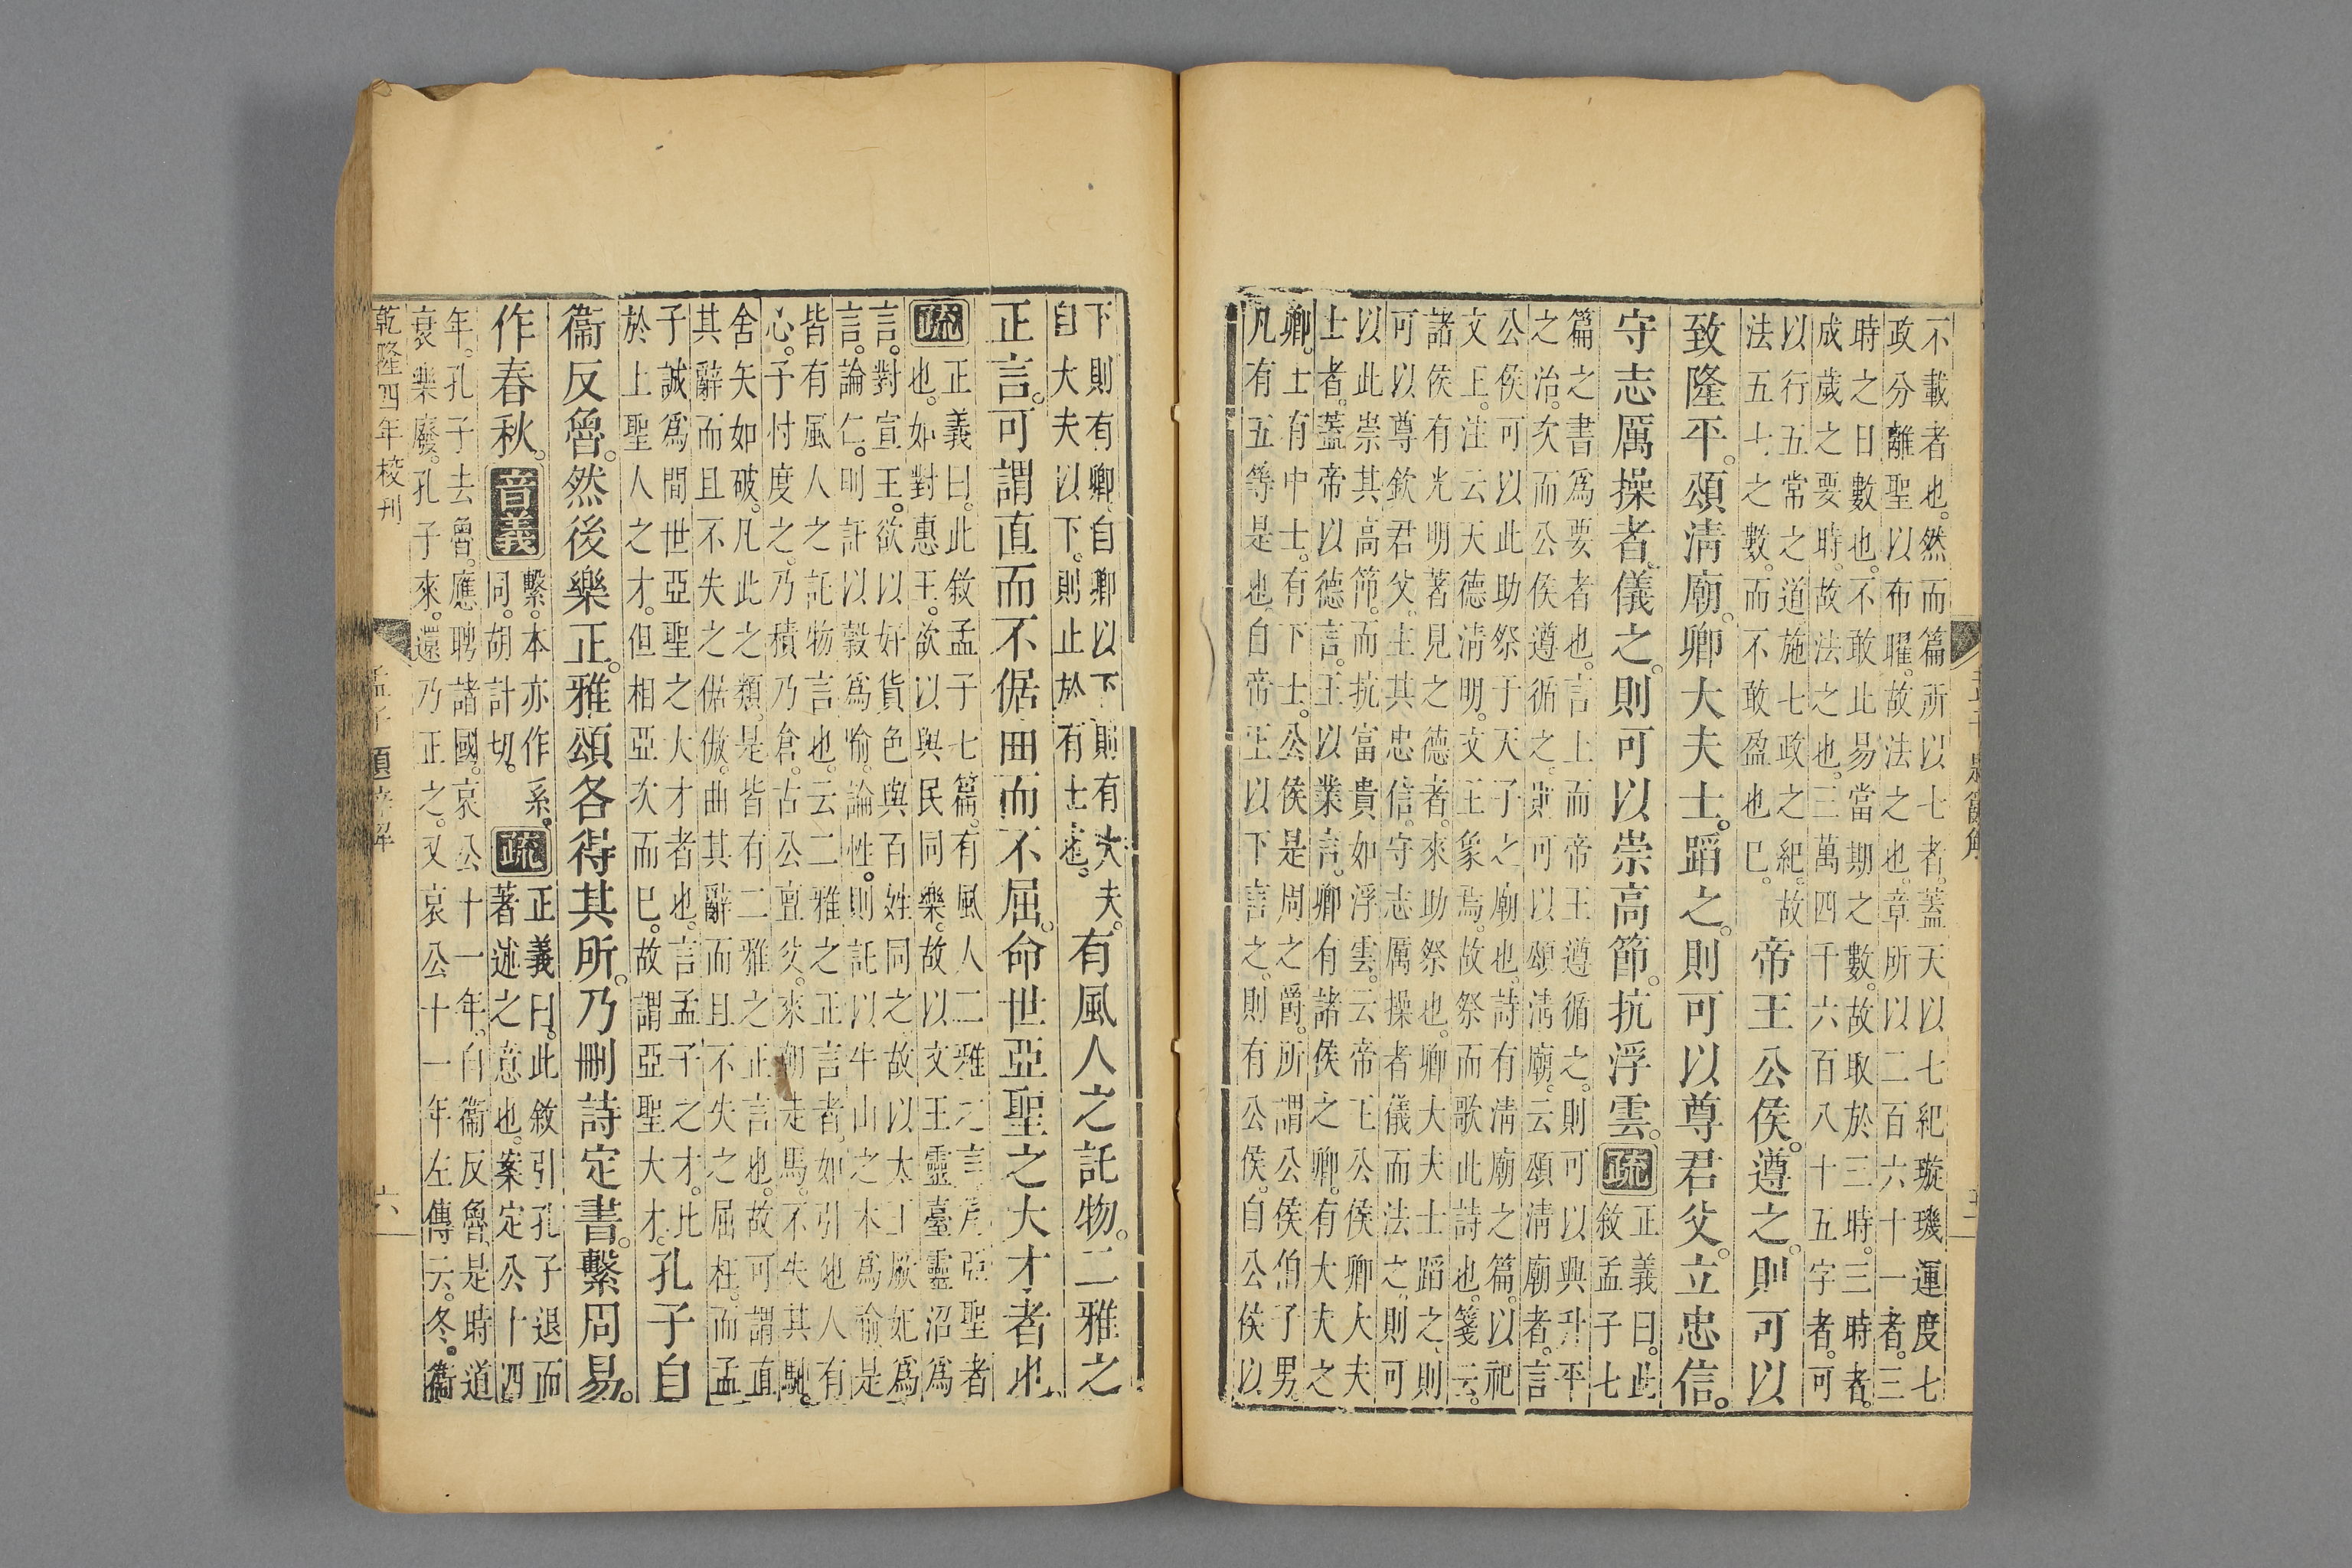 不載者也。然而篇所以七者。蓋天以七紀璇璣運度七
政分離聖以布曜。故法之也。章所以二百六十一者。三
時之日數也。不敢此易當期之數。故取於三時。三時者。
成歲之要時。故法之也。三萬四千六百八十五字者。可
以行五常之道。施七政之紀。故
法五七之數。而不敢盈也已。
帝王公侯。遵之。則可以
致隆平。頌淸廟。卿大夫士。蹈之。則可以尊君父。立忠信。
守志厲操者。儀之。則可以崇高節。抗浮雲。
疏
正義曰。此
敘孟子七
篇之書爲要者也。言上而帝王遵循之。則可以興升平
之治。次而公侯遵循之。則可以頌淸廟。云頌淸廟者。言
公侯可以此助祭于天子之廟也。詩有淸廟之篇。以祀
文王。注云天德淸明。文王象焉。故祭而歌此詩也。箋云。
諸侯有光明著見之德者。來助祭也。卿大夫士蹈之。則
可以尊欽君父。主其忠信。守志厲操者儀而法之。則可
以此崇其高節。而抗富貴如浮雲。云帝王公侯卿大夫
士者。蓋帝以德言。王以業言。卿有諸侯之卿。有大夫之
卿。士有中士。有下士。公侯是周之爵。所謂公侯伯子男
凡有五等是也。自帝王以下言之。則有公侯。自公侯以
下則有卿。自卿以下則有大夫。
自大夫以下。則止於有士也。
有風人之託物。二雅之
正言。可謂直而不倨。曲而不屈。命世亞聖之大才者也。
疏
正義曰。此敘孟子七篇。有風人二雅之言。爲亞聖者
也。如對惠王。欲以與民同樂。故以文王靈臺靈沼爲
言。對宣王。欲以好貨色與百姓同之。故以太王厥妃爲
言。論仁。則託以穀爲喻。論性。則託以牛山之木爲喻。是
皆有風人之託物言也。云二雅之正言者。如引他人有
心。子忖度之。乃積乃倉。古公亶父。來朝走馬。不失其馳。
舍矢如破。凡此之類。是皆有二雅之正言也。故可謂直
其辭而且不失之倨傲。曲其辭而且不失之屈枉。而孟
子誠爲間世亞聖之大才者也。言孟子之才。比
於上聖人之才。但相亞次而已。故謂亞聖大才。
孔子自
衞反魯。然後樂正。雅頌各得其所。乃刪詩定書。繫周易。
作春秋。
音義
繫。本亦作系。
同。胡計切。
疏
正義曰。此敘引孔子退而
著述之意也。案定公十四
年。孔子去魯。應聘諸國。哀公十一年。自衞反魯。是時道
衰樂廢。孔子來。還乃正之。又哀公十一年左傳云。冬。衞
乾隆四年校刊
孟子題辭解
六